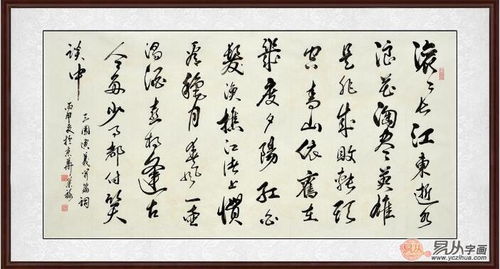 滚〻长江東逝水
浪花淘尽英雄
是非成敗转頭
空青山依舊在
幾度夕陽红白
髮渔樵江渚上慣
看秋月春風一壶
濁酒喜相逢古
今多少事都付笑
谈中
三国演義開篇詞
丙申夏於京華
易从字画
www.yczihua.com